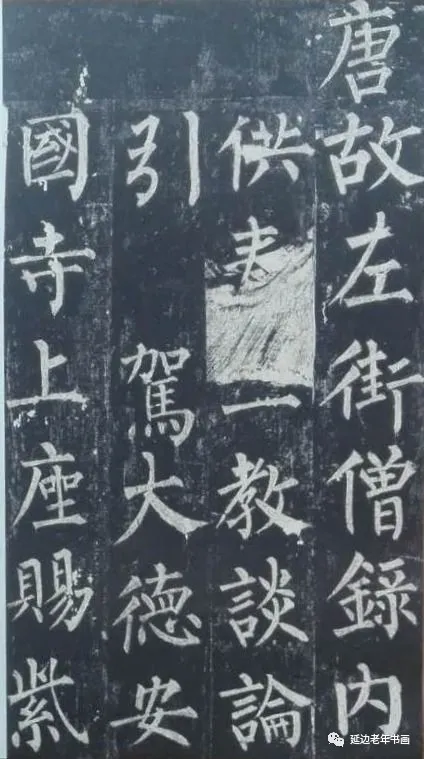 唐故左街僧錄內
供教談論
引駕大德安
國寺上座賜紫
延边老年书画